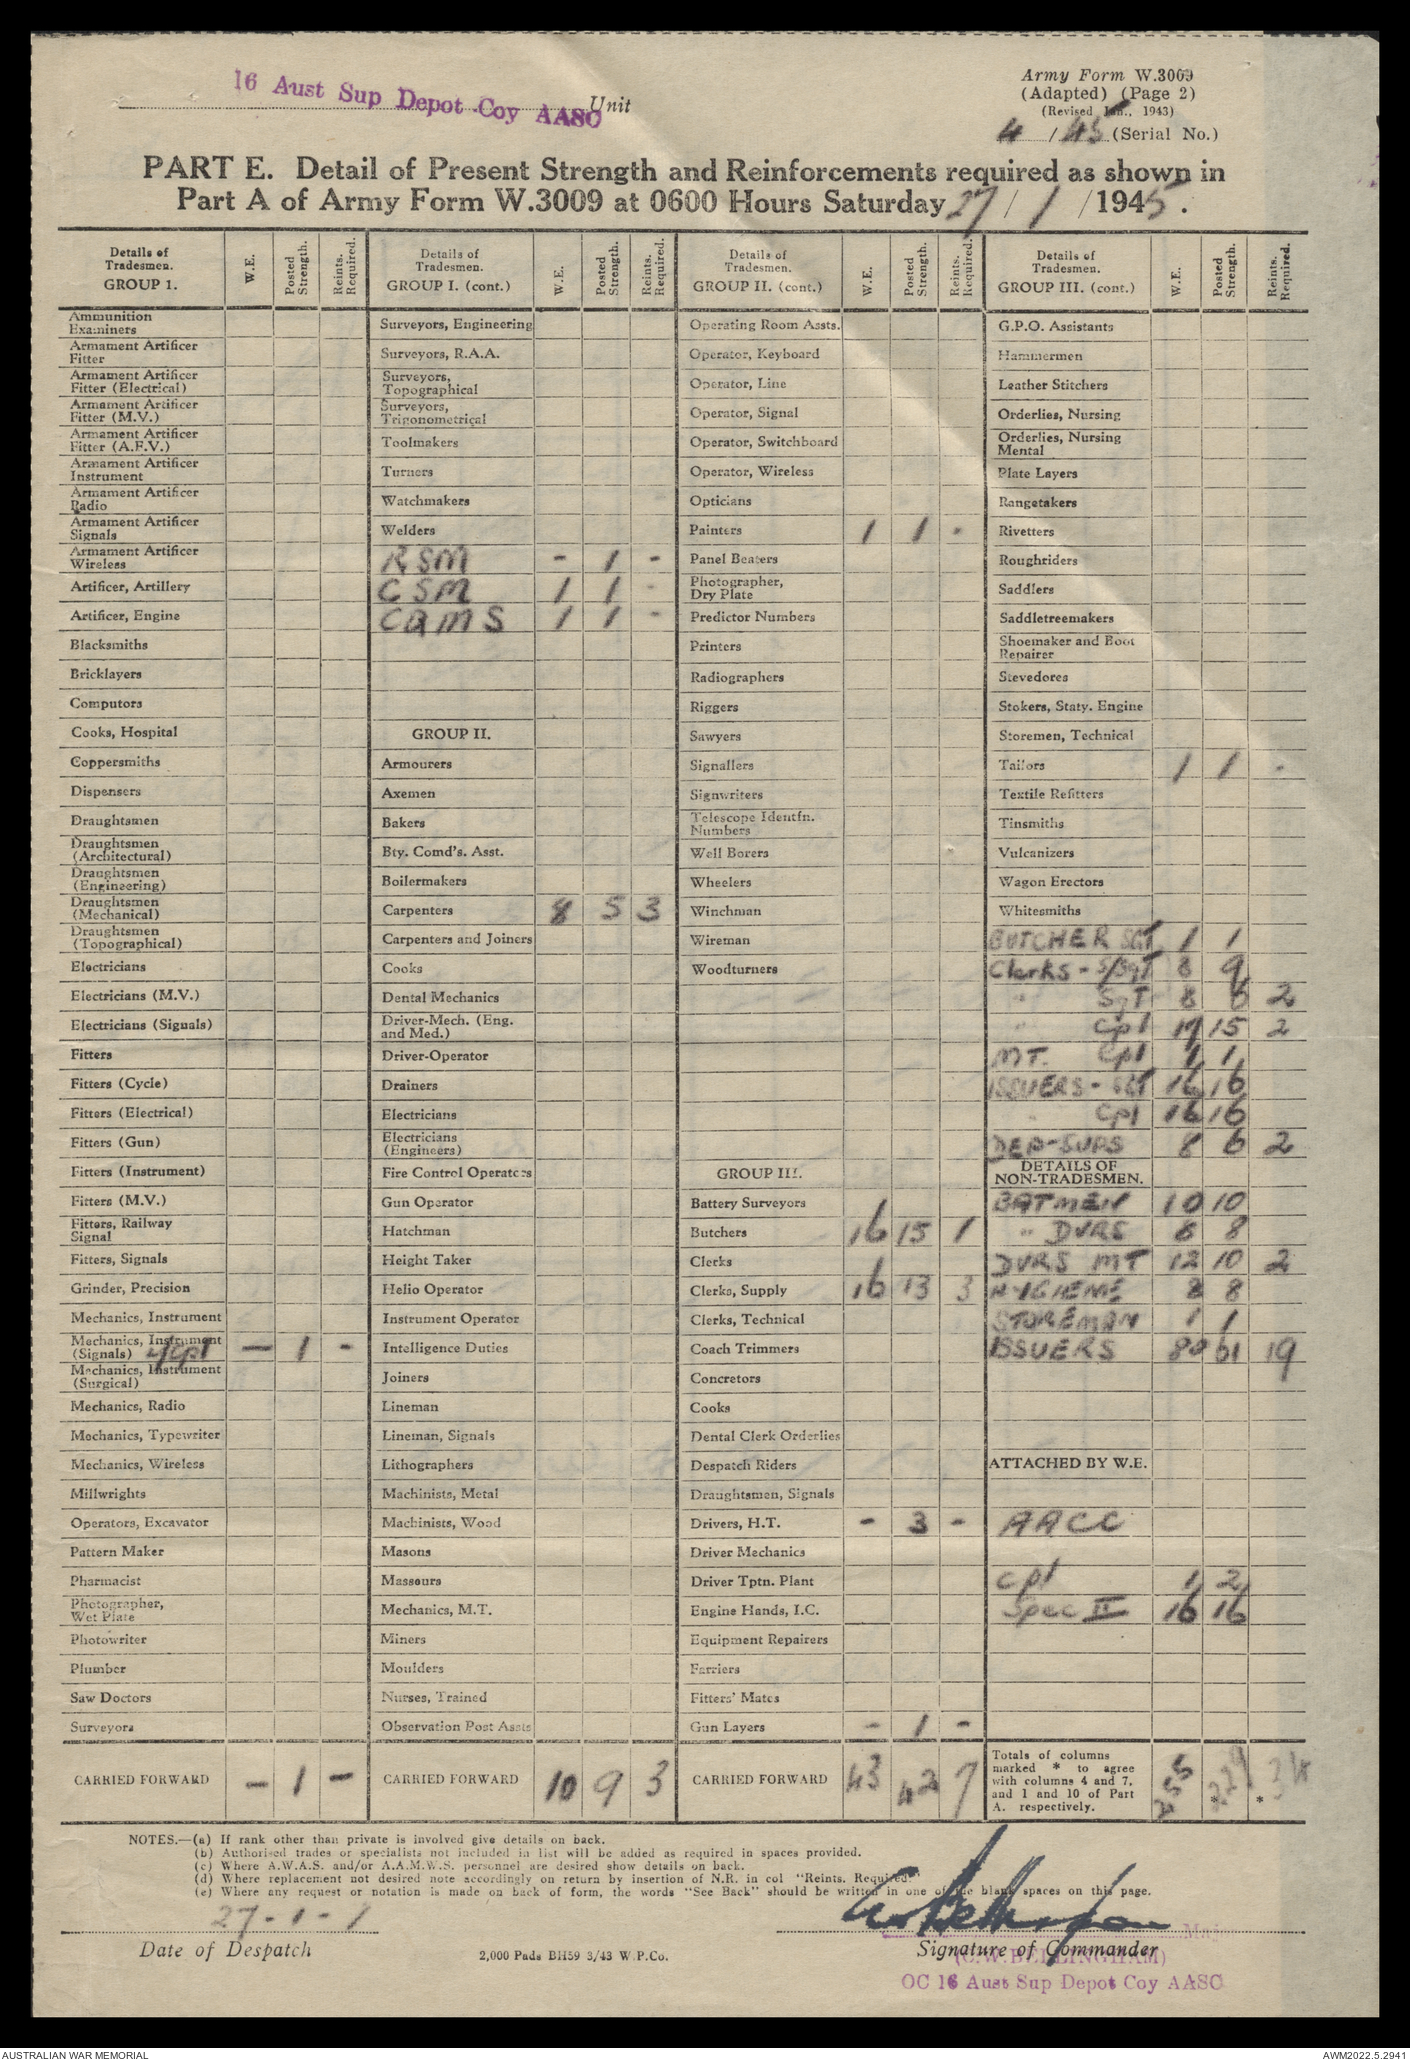 16 Aust Sup Depot Coy AASC Unit
Army Form W.3009
(Adapted) (Page 2)
(Revised Jan., 1943)
4 / 45 (Serial No.)
PART E. Detail of Present Strength and Reinforcements required as shown in
Part A of Army Form W.3009 at 0600 Hours Saturday 27 / 1 / 1945.
Details of Tradesmen. GROUP 1. W.E. Posted Strength. Reints. Required.
Ammunition Examiners
Armament Artificer Fitter
Armament Artificer Fitter (Electrical)
Armament Artificer Fitter (M.V.)
Armament Artificer Fitter (A.F.V.)
Armament Artificer Instrument
Armament Artificer Radio
Armament Artificer Signals
Armament Artificer Wireless
Artificer, Artillery
Artificer, Engine
Blacksmiths
Bricklayers
Computors
Cooks, Hospital
Coppersmiths
Dispensers
Draughtsmen
Draughtsmen (Architectural)
Draughtsmen (Engineering)
Draughtsmen (Mechanical)
Draughtsmen (Topographical)
Electricians
Electricians (M.V.)
Electricians (Signals)
Fitters
Fitters (Cycle)
Fitters (Electrical)
Fitters (Gun)
Fitters (Instrument)
Fitters (M.V.)
Fitters, Railway Signal
Fitters, Signals
Grinder, Precision
Mechanics, Instrument
Mechanics, Instrument (Signals) L/Cpl - 1 -
Mechanics, Instrument (Surgical)
Mechanics, Radio
Mechanics, Typewriter
Mechanics, Wireless
Millwrights
Operators, Excavator
Pattern Maker
Pharmacist
Photographer, Wet Plate
Photowriter
Plumber
Saw Doctors
Surveyors
CARRIED FORWARD - 1 -
Details of Tradesmen. GROUP I. (cont.) W.E. Posted Strength. Reints. Required.
Surveyors, Engineering
Surveyors, R.A.A.
Surveyors, Topographical
Surveyors, Trigonometrical
Toolmakers
Turners
Watchmakers
Welders
RSM - 1 -
CSM 1 1 -
CQMS 1 1 -
GROUP II.
Armourers
Axemen
Bakers
Bty. Comd's. Asst.
Boilermakers
Carpenters 8 5 3
Carpenters and Joiners
Cooks
Dental Mechanics
Driver-Mech. (Eng. and Med.)
Driver-Operator
Drainers
Electricians
Electricians (Engineers)
Fire Control Operators
Gun Operator
Hatchman
Height Taker
Helio Operator
Instrument Operator
Intelligence Duties
Joiners
Lineman
Lineman, Signals
Lithographers
Machinists, Metal
Machinists, Wood
Masons
Masseurs
Mechanics, M.T.
Miners
Moulders
Nurses, Trained
Observation Post Assts
CARRIED FORWARD 10 9 3
Details of Tradesmen. GROUP II. (cont.) W.E. Posted Strength. Reints. Required.
Operating Room Assts.
Operator, Keyboard
Operator, Line
Operator, Signal
Operator, Switchboard
Operator, Wireless
Opticians
Painters 1 1 -
Panel Beaters
Photographer, Dry Plate
Predictor Numbers
Printers
Radiographers
Riggers
Sawyers
Signallers
Signwriters
Telescope Identfn. Numbers
Well Borers
Wheelers
Winchman
Wireman
Woodturners
GROUP III.
Battery Surveyors
Butchers 16 15 1
Clerks
Clerks, Supply 16 13 3
Clerks, Technical
Coach Trimmers
Concretors
Cooks
Dental Clerk Orderlies
Despatch Riders
Draughtsmen, Signals
Drivers, H.T. - 3 -
Driver Mechanics
Driver Tptn. Plant
Engine Hands, I.C.
Equipment Repairers
Farriers
Fitters' Mates
Gun Layers - 1 -
CARRIED FORWARD 43 42 7
Details of Tradesmen. GROUP III. (cont.) W.E. Posted Strength. Reints. Required.
G.P.O. Assistants
Hammermen
Leather Stitchers
Orderlies, Nursing
Orderlies, Nursing Mental
Plate Layers
Rangetakers
Rivetters
Roughriders
Saddlers
Saddletreemakers
Shoemaker and Boot Repairer
Stevedores
Stokers, Staty. Engine
Storemen, Technical
Tailors 1 1 -
Textile Refitters
Tinsmiths
Vulcanizers
Wagon Erectors
Whitesmiths
BUTCHER SGT 1 1
Clerks - S/Sgt 8 9
" SgT 8 6 2
" Cpl 17 15 2
MT. Cpl 1 1
ISSUERS - SGT 16 16
Cpl 16 16
DEP-SUPS 8 6 2
DETAILS OF NON-TRADESMEN.
BATMEN 10 10
" DVRS 8 8
DVRS MT 12 10 2
HYGIENE 8 8
STOREMAN 1 1
ISSUERS 80 61 19
ATTACHED BY W.E.
AACC
Cpl 1 2
Spec II 16 16
Totals of columns marked * to agree with columns 4 and 7, and 1 and 10 of Part A. respectively. 255 * 229 *
NOTES.—(a) If rank other than private is involved give details on back.
(b) Authorised trades or specialists not included in list will be added as required in spaces provided.
(c) Where A.W.A.S. and/or A.A.M.W.S. personnel are desired show details on back.
(d) Where replacement not desired note accordingly on return by insertion of N.R. in col "Reints. Required."
(e) Where any request or notation is made on back of form, the words "See Back" should be written in one of the blank spaces on this page.
27-1-
Date of Despatch
2,000 Pads BH59 3/43 W.P.Co.
Major
Signature of Commander
(C.W.BELLINGHAM)
OC 16 Aust Sup Depot Coy AASC
AUSTRALIAN WAR MEMORIAL
AWM2022.5.2941